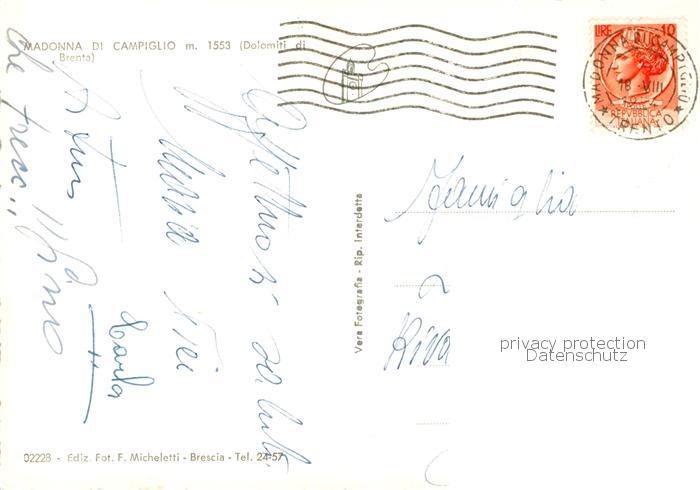 MADONNA DI CAMPIGLIO m. 1553 (Dolomiti di
Brenta)
LIRE 10
REPVBBLICA
ITALIANA
MADONNA DI CAMPIGLIO
18 VIII
* TRENTO *
Affettuosi saluti
Maria
Carla
che freco..
Vera Fotografia - Rip. Interdetta
Famiglia
Riva
privacy protection
Datenschutz
02228 - Ediz. Fot. F. Micheletti - Brescia - Tel. 24-57